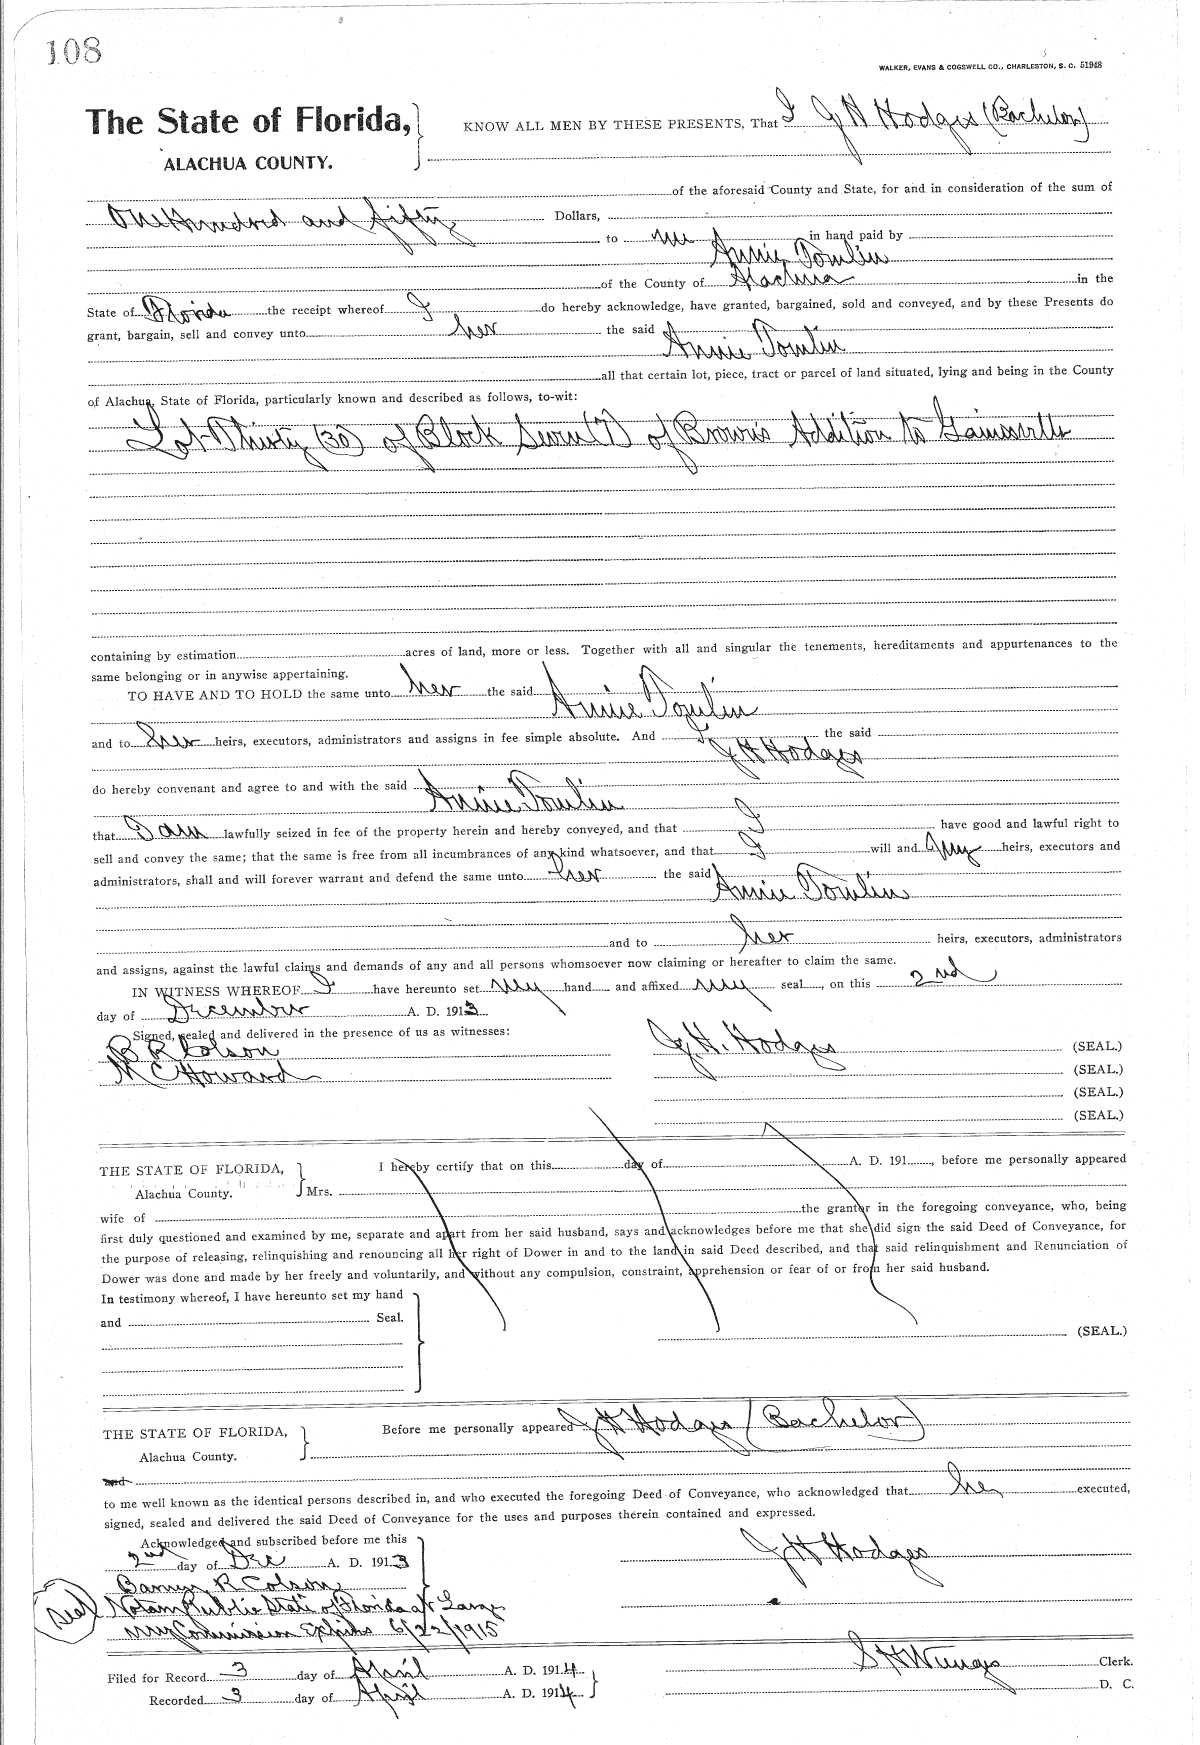 108
WALKER, EVANS & COGSWELL CO., CHARLESTON, S. C. 51948
The State of Florida,
ALACHUA COUNTY.
KNOW ALL MEN BY THESE PRESENTS, That I J H Hodges (Bachelor)
of the aforesaid County and State, for and in consideration of the sum of
One Hundred and fifty Dollars,
to me in hand paid by
Annie Tomlin
of the County of Alachua in the
State of Florida the receipt whereof I do hereby acknowledge, have granted, bargained, sold and conveyed, and by these Presents do
grant, bargain, sell and convey unto her the said
Annie Tomlin
all that certain lot, piece, tract or parcel of land situated, lying and being in the County
of Alachua, State of Florida, particularly known and described as follows, to-wit:
Lot Thirty (30) of Block Seven (7) of Browns Addition to Gainesville
containing by estimation acres of land, more or less. Together with all and singular the tenements, hereditaments and appurtenances to the
same belonging or in anywise appertaining.
TO HAVE AND TO HOLD the same unto her the said
Annie Tomlin
and to her heirs, executors, administrators and assigns in fee simple absolute. And I the said
J H Hodges
do hereby convenant and agree to and with the said
Annie Tomlin
that I am lawfully seized in fee of the property herein and hereby conveyed, and that I have good and lawful right to
sell and convey the same; that the same is free from all incumbrances of any kind whatsoever, and that I will and my heirs, executors and
administrators, shall and will forever warrant and defend the same unto her the said
Annie Tomlin
and to her heirs, executors, administrators
and assigns, against the lawful claims and demands of any and all persons whomsoever now claiming or hereafter to claim the same.
IN WITNESS WHEREOF I have hereunto set my hand and affixed my seal, on this 2nd
day of December A. D. 1913
Signed, sealed and delivered in the presence of us as witnesses:
B R Colson
M C Howard
J. H. Hodges (SEAL.)
(SEAL.)
(SEAL.)
(SEAL.)
THE STATE OF FLORIDA,
Alachua County.
I hereby certify that on this day of A. D. 191, before me personally appeared
Mrs.
wife of the grantor in the foregoing conveyance, who, being
first duly questioned and examined by me, separate and apart from her said husband, says and acknowledges before me that she did sign the said Deed of Conveyance, for
the purpose of releasing, relinquishing and renouncing all her right of Dower in and to the land in said Deed described, and that said relinquishment and Renunciation of
Dower was done and made by her freely and voluntarily, and without any compulsion, constraint, apprehension or fear of or from her said husband.
In testimony whereof, I have hereunto set my hand
and Seal.
(SEAL.)
THE STATE OF FLORIDA,
Alachua County.
Before me personally appeared J H Hodges (Bachelor)
and
to me well known as the identical persons described in, and who executed the foregoing Deed of Conveyance, who acknowledged that he executed,
signed, sealed and delivered the said Deed of Conveyance for the uses and purposes therein contained and expressed.
Acknowledged and subscribed before me this
2nd day of Dec A. D. 1913
J H Hodges
R Colson
Seal
Notary Public State of Florida at Large
my Commission Expires 6/22/1915
S H Wienges Clerk.
Filed for Record 3 day of April A. D. 1914
Recorded 3 day of April A. D. 1914
D. C.